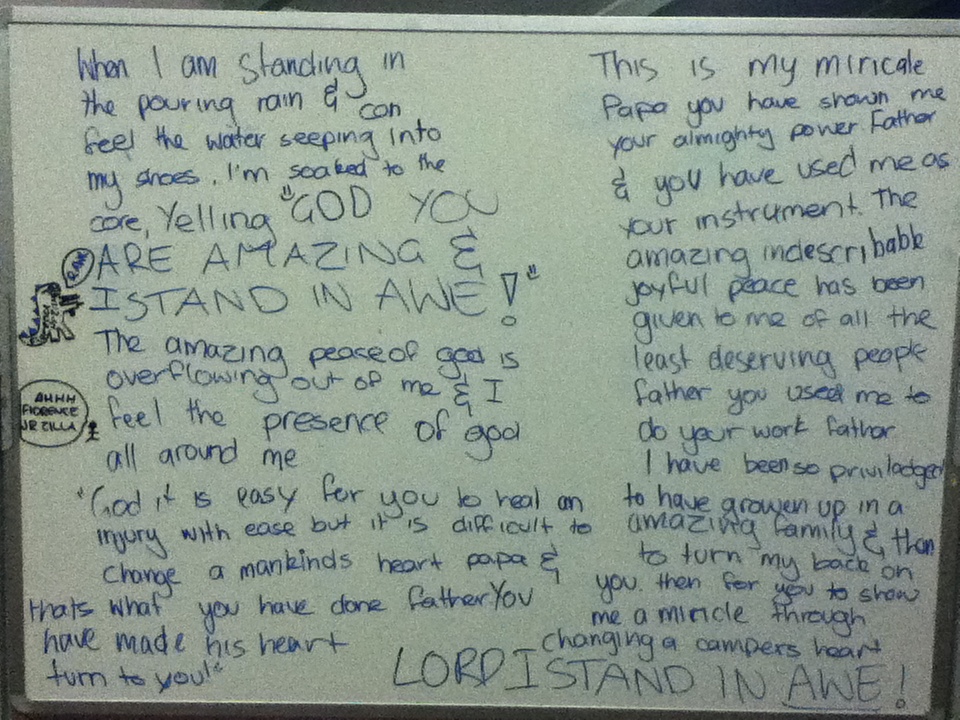 When I am standing in
the pouring rain & can
feel the water seeping into
my shoes. I'm soaked to the
core, Yelling "GOD YOU
ARE AMAZING &
I STAND IN AWE!"
The amazing peace of god is
overflowing out of me & I
feel the presence of god
all around me
"God it is easy for you to heal an
injury with ease but it is difficult to
change a mankinds heart papa &
thats what you have done father You
have made his heart
turn to you!"
RAW
AHHH
FLORENCE
JR ZILLA
This is my miricale
Papa you have shown me
your almighty power Father
& you have used me as
your instrument. The
amazing indescribable
joyful peace has been
given to me of all the
least deserving people
father you used me to
do your work father
I have been so priviladged
to have growen up in a
amazing family & than
to turn my back on
you. then for you to show
me a miricle through
changing a campers heart
LORD I STAND IN AWE!